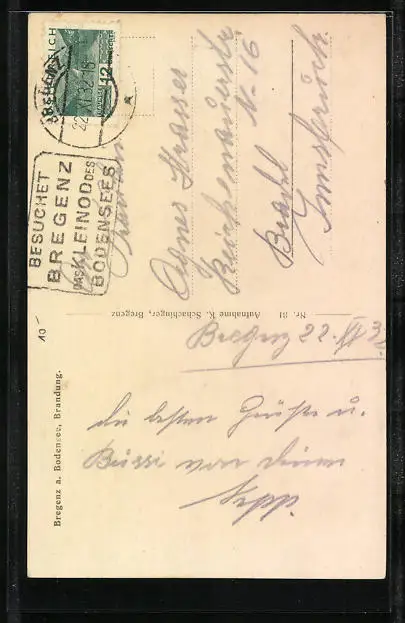 BREGENZ
22.XI.32.18
ÖSTERREICH
12
BESUCHET
BREGENZ
DAS KLEINOD DES
BODENSEES
Fräulein
Agnes Strasser
Reichenauerstr
N-16
Pradl
Innsbruck.
Nr. 31 Aufnahme K. Schachinger, Bregenz
10-
Bregenz 22. XI 32
die besten Grüße u.
Bussi von deinem
Sepp.
Bregenz a. Bodensee, Brandung.